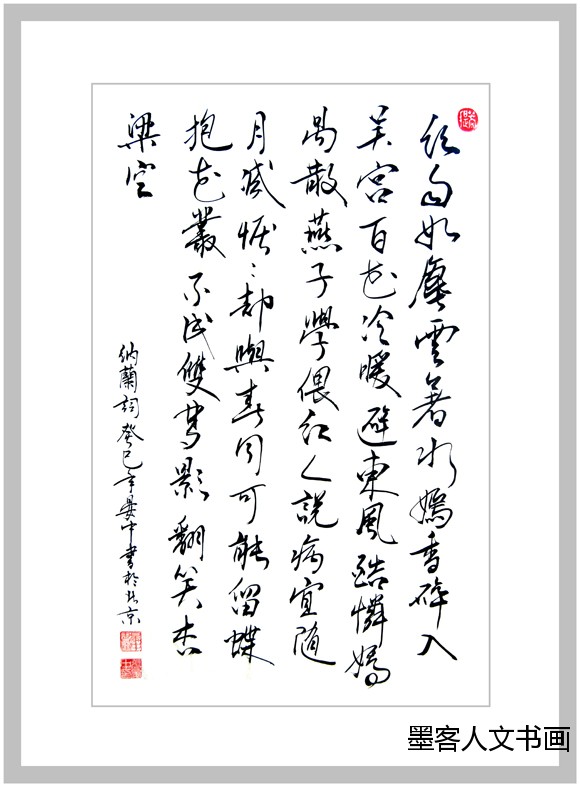 丝雨如塵雲著水嫣香碎入
吴宫百花冷暖避東風酷憐嬌
易散燕子學偎紅人說病宜隨
月減恹〻却與春同可能留蝶
抱花叢不成雙夢影翻笑杏
梁空
納蘭詞癸巳年晏中書於北京
墨客人文书画